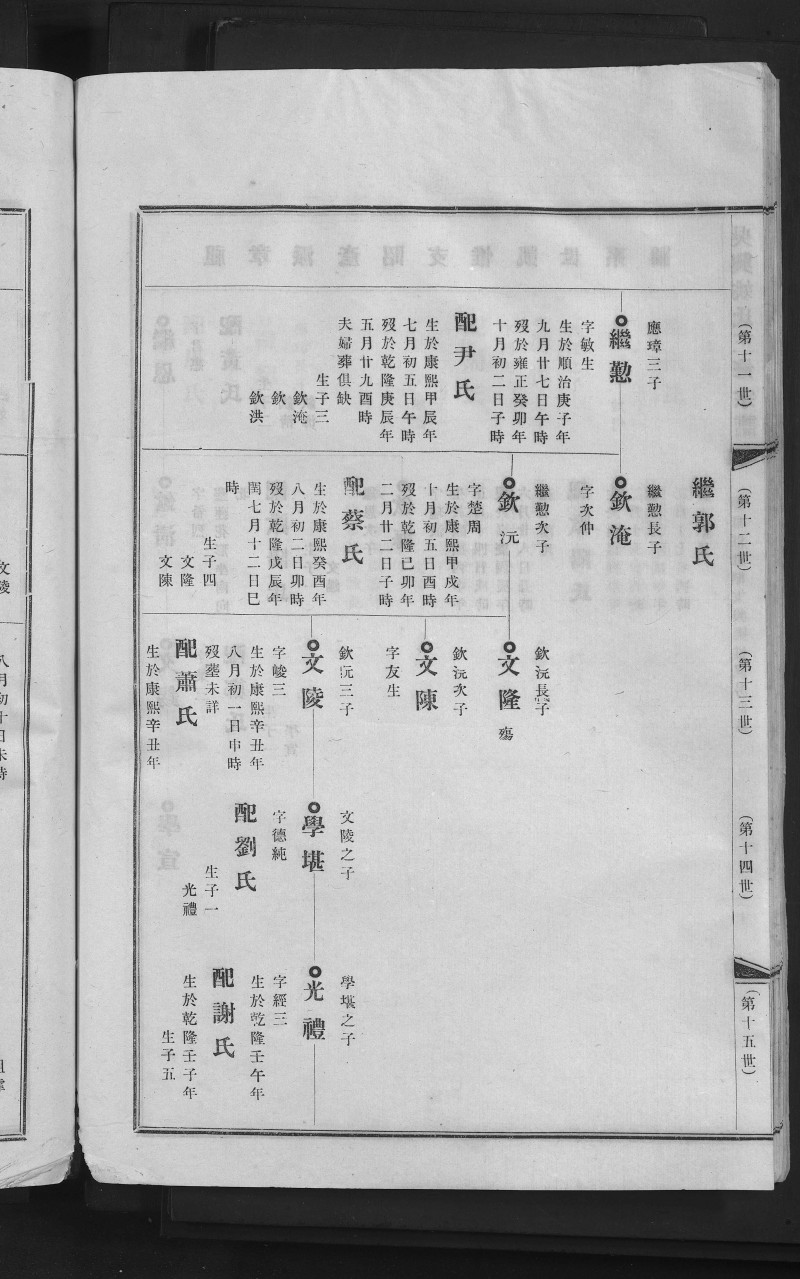 (第十一世)
應璋三子
繼懃
字敏生
生於順治庚子年
九月廿七日午時
歿於雍正癸卯年
十月初二日子時
配尹氏
生於康熙甲辰年
七月初五日午時
歿於乾隆庚辰年
五月廿九酉時
夫婦葬俱缺
生子三
欽淹
欽
欽洪
(第十二世)
繼郭氏
繼懃長子
欽淹
字次仲
繼懃次子
欽沅
字楚周
生於康熙甲戌年
十月初五日酉時
歿於乾隆己卯年
二月廿二日子時
配蔡氏
生於康熙癸酉年
八月初二日卯時
歿於乾隆戊辰年
閏七月十二日巳
時
生子四
文隆
文陳
(第十三世)
欽沅長子
文隆 殤
欽沅次子
文陳
字友生
欽沅三子
文陵
字峻三
生於康熙辛丑年
八月初一日申時
歿塟未詳
配蕭氏
生於康熙辛丑年
(第十四世)
文陵之子
學堪
字德純
配劉氏
生子一
光禮
(第十五世)
學堪之子
光禮
字經三
生於乾隆壬午年
配謝氏
生於乾隆壬子年
生子五
文陵
八月初十日未時